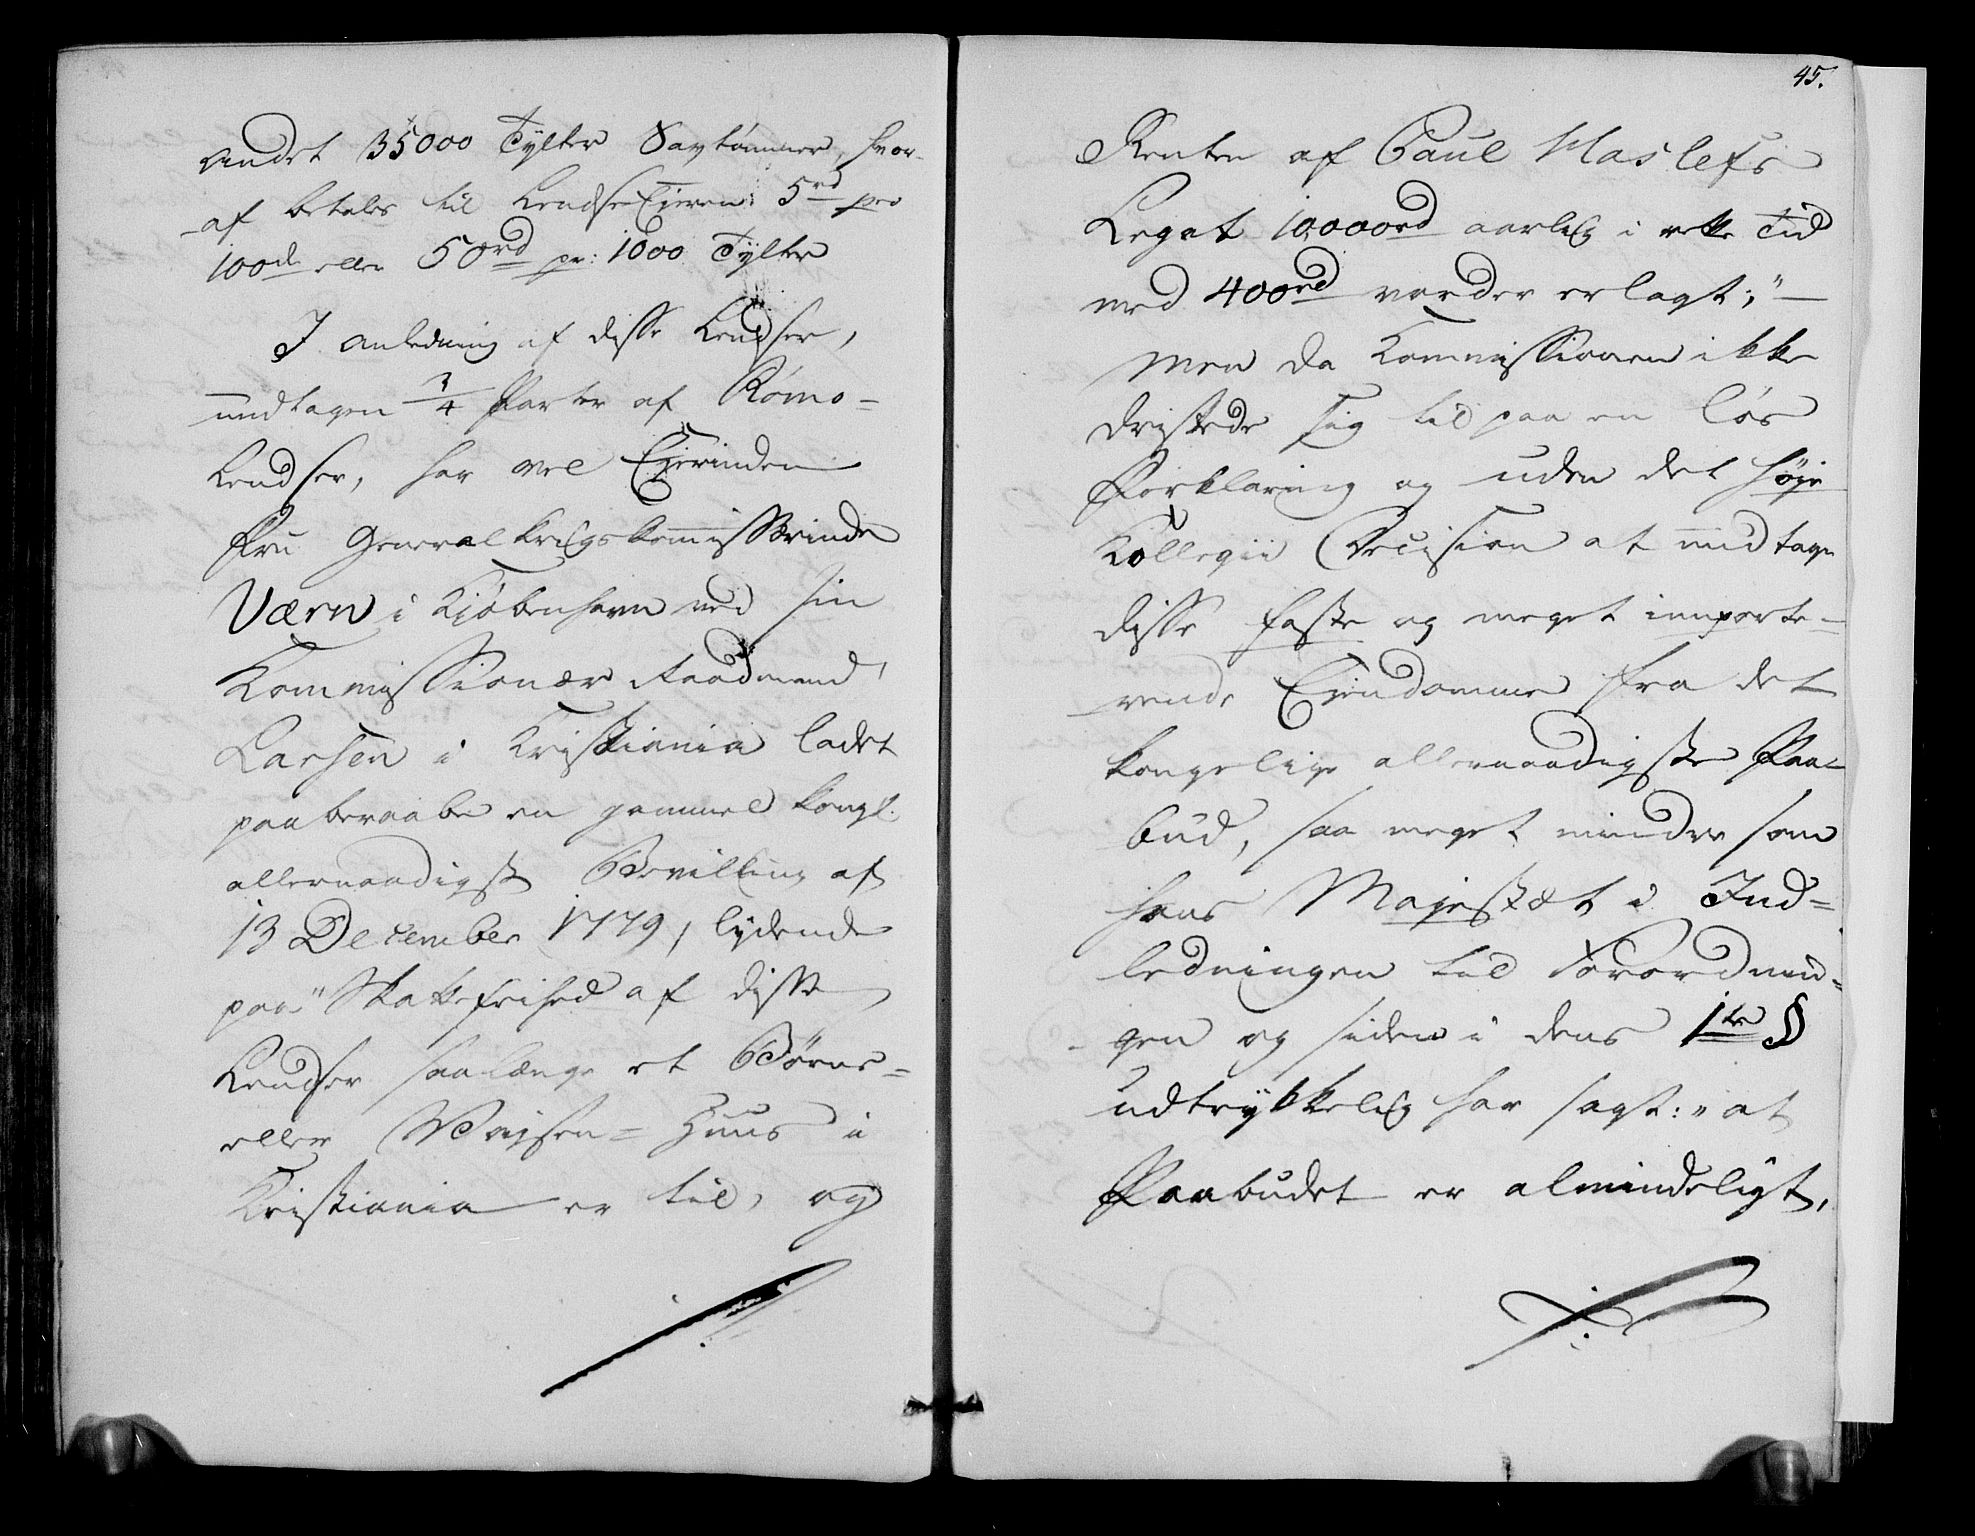 andet 35000 Tylter Savtømmer, hvor-
af betales til Lendse Ejeren: 5rd pro
100de eller 50rd pr: 1000 Tylter
I anledning af disse Lendser,
undtagen 3/4 Parter af Rømo-
Lendser, har vel Ejerinden
Fru Generalkrigskommissærinde
Værn i Kiøbenhavn ved sin
Kommissionær Raadmand
Larsen i Kristiania ladet
paaberaabe en gammel kongl.
allernaadigst Bevilling af
13 December 1779, lydende
paa "Skattefrihed af disse
Lendser saalænge et Børne-
eller Waysen-Huus i
Kristiania er til, og
45.
Renten af Paul
Legat 10000rd aarlig i rette Tid
med 400rd vorder erlagt;"
Men da Kommissionen ikke
dristede sig til paa en løs
Forklaring og uden det høje
Kollegii Decision at undtage
disse faste og meget importe-
rende Ejendomme fra det
kongelige allernaadigste Paa-
bud, saa meget mindre som
Hans Majestæt i Ind-
ledningen til Forordnin-
gen og siden i dens 1te §
udtrykkelig har sagt: "at
Paabudet er almindeligt,